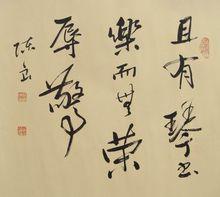 且有琴書
樂而無榮
辱驚
陳